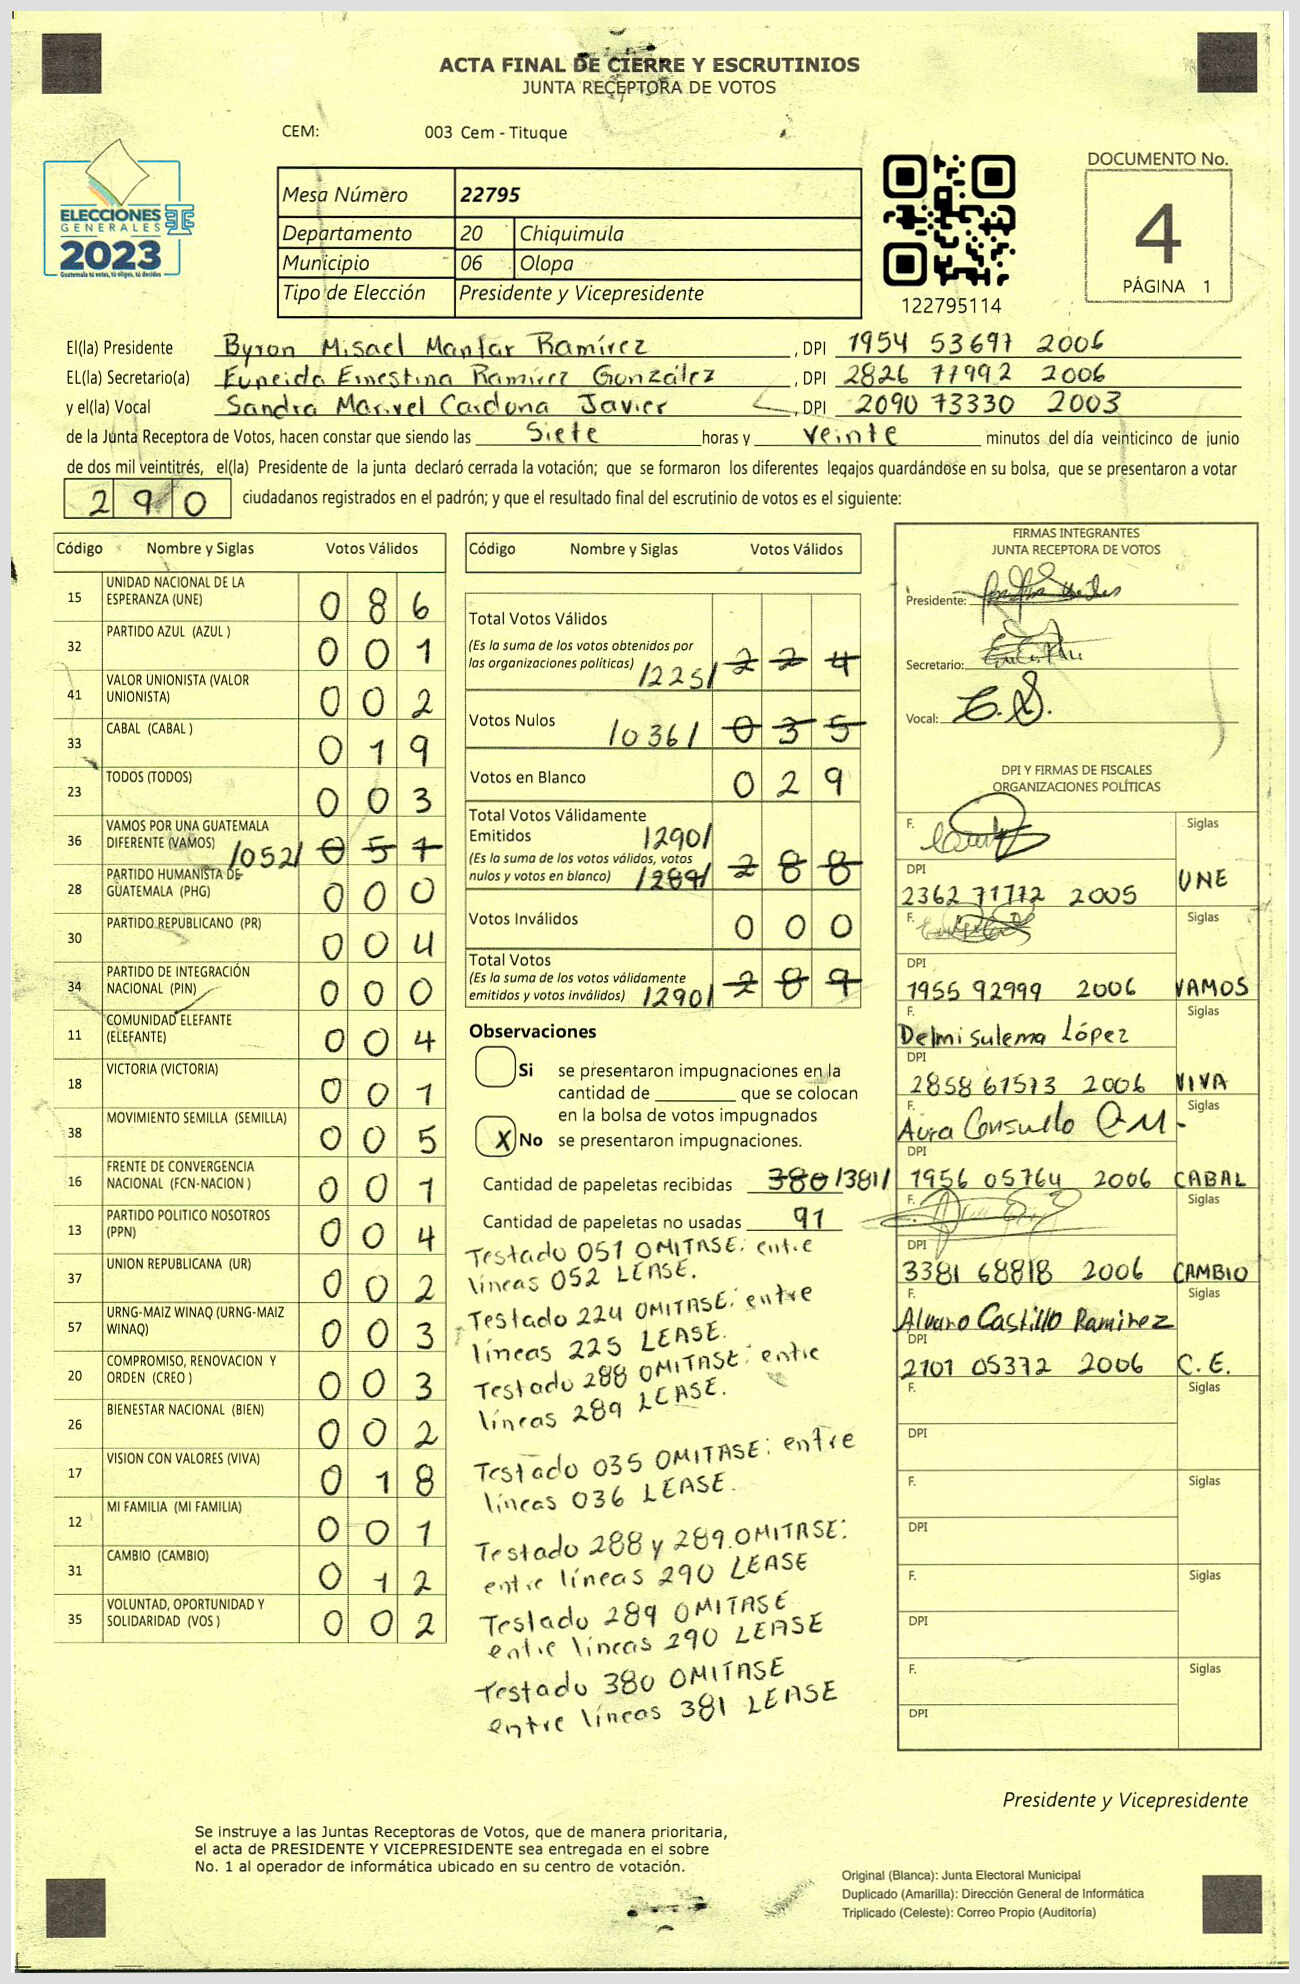 ACTA FINAL DE CIERRE Y ESCRUTINIOS
JUNTA RECEPTORA DE VOTOS
CEM: 003 Cem - Tituque
ELECCIONES
GENERALES
2023
Guatemala tú votas, tú eliges, tú decides
Mesa Número 22795
Departamento 20 Chiquimula
Municipio 06 Olopa
Tipo de Elección Presidente y Vicepresidente
122795114
DOCUMENTO No.
4
PÁGINA 1
El(la) Presidente Byron Misael Manfar Ramírez , DPI 1954 53697 2006
EL(la) Secretario(a) Euneida Ernestina Ramirez González , DPI 2826 77992 2006
y el(la) Vocal Sandra Marivel Cardona Javier , DPI 2090 73330 2003
de la Junta Receptora de Votos, hacen constar que siendo las Siete horas y veinte minutos del día veinticinco de junio
de dos mil veintitrés, el(la) Presidente de la junta declaró cerrada la votación; que se formaron los diferentes legajos guardándose en su bolsa, que se presentaron a votar
290 ciudadanos registrados en el padrón; y que el resultado final del escrutinio de votos es el siguiente:
Código Nombre y Siglas Votos Válidos
15 UNIDAD NACIONAL DE LA ESPERANZA (UNE) 086
32 PARTIDO AZUL (AZUL ) 001
41 VALOR UNIONISTA (VALOR UNIONISTA) 002
33 CABAL (CABAL ) 019
23 TODOS (TODOS) 003
36 VAMOS POR UNA GUATEMALA DIFERENTE (VAMOS) /052/ 051
28 PARTIDO HUMANISTA DE GUATEMALA (PHG) 000
30 PARTIDO REPUBLICANO (PR) 004
34 PARTIDO DE INTEGRACIÓN NACIONAL (PIN) 000
11 COMUNIDAD ELEFANTE (ELEFANTE) 004
18 VICTORIA (VICTORIA) 001
38 MOVIMIENTO SEMILLA (SEMILLA) 005
16 FRENTE DE CONVERGENCIA NACIONAL (FCN-NACION ) 001
13 PARTIDO POLITICO NOSOTROS (PPN) 004
37 UNION REPUBLICANA (UR) 002
57 URNG-MAIZ WINAQ (URNG-MAIZ WINAQ) 003
20 COMPROMISO, RENOVACION Y ORDEN (CREO ) 003
26 BIENESTAR NACIONAL (BIEN) 002
17 VISION CON VALORES (VIVA) 018
12 MI FAMILIA (MI FAMILIA) 001
31 CAMBIO (CAMBIO) 012
35 VOLUNTAD, OPORTUNIDAD Y SOLIDARIDAD (VOS ) 002
Código Nombre y Siglas Votos Válidos
Total Votos Válidos
(Es la suma de los votos obtenidos por
las organizaciones políticas) /225/ 224
Votos Nulos /036/ 035
Votos en Blanco 029
Total Votos Válidamente
Emitidos /290/
(Es la suma de los votos válidos, votos
nulos y votos en blanco) /289/ 288
Votos Inválidos 000
Total Votos
(Es la suma de los votos válidamente
emitidos y votos inválidos) /290/ 289
Observaciones
Si se presentaron impugnaciones en la
cantidad de ________ que se colocan
en la bolsa de votos impugnados
X No se presentaron impugnaciones.
Cantidad de papeletas recibidas 380 /381/
Cantidad de papeletas no usadas 91
Testado 051 OMITASE: entre
líneas 052 LEASE.
Testado 224 OMITASE: entre
líneas 225 LEASE.
Testado 288 OMITASE: entre
líneas 289 LEASE.
Testado 035 OMITASE: entre
líneas 036 LEASE.
Testado 288 y 289 OMITASE:
entre líneas 290 LEASE
Testado 289 OMITASE
entre líneas 290 LEASE
Testado 380 OMITASE
entre líneas 381 LEASE
FIRMAS INTEGRANTES
JUNTA RECEPTORA DE VOTOS
Presidente:
Secretario:
Vocal: C. S.
DPI Y FIRMAS DE FISCALES
ORGANIZACIONES POLÍTICAS
F. Siglas
DPI
2362 71772 2005 UNE
F. Siglas
DPI
1955 92999 2006 VAMOS
F. Siglas
Delmi sulema López
DPI
2858 61573 2006 VIVA
F. Siglas
Aura Consuelo
DPI
1956 05764 2006 CABAL
F. Siglas
DPI
3381 68818 2006 CAMBIO
F. Siglas
Alvaro Castillo Ramirez
DPI
2101 05372 2006 C.E.
F. Siglas
DPI
F. Siglas
DPI
F. Siglas
DPI
F. Siglas
DPI
Presidente y Vicepresidente
Se instruye a las Juntas Receptoras de Votos, que de manera prioritaria,
el acta de PRESIDENTE Y VICEPRESIDENTE sea entregada en el sobre
No. 1 al operador de informática ubicado en su centro de votación.
Original (Blanca): Junta Electoral Municipal
Duplicado (Amarilla): Dirección General de Informática
Triplicado (Celeste): Correo Propio (Auditoría)